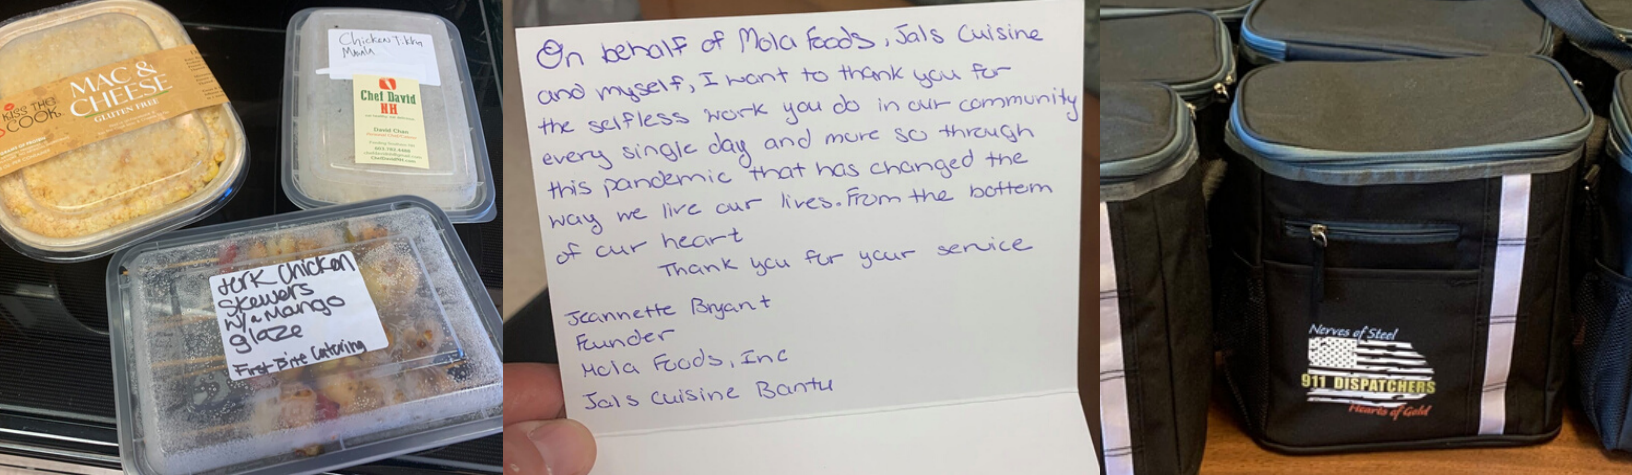 KISS THE
COOK
MAC &
CHEESE
GLUTEN FREE
Chicken Tikka
Masala
Chef David
NH
David Chao
Personal Chef/Caterer
Jerk Chicken
Skewers
w/a Mango
glaze
First Bite Catering
On behalf of Mola Foods, Jals Cuisine
and myself, I want to thank you for
the selfless work you do in our community
every single day and more so through
this pandemic that has changed the
way we live our lives. From the bottem
of our heart
Thank you for your service
Jeannette Bryant
Founder
Mola Foods, Inc
Jals Cuisine Bantu
Nerves of Steel
911 DISPATCHERS
Hearts of Gold